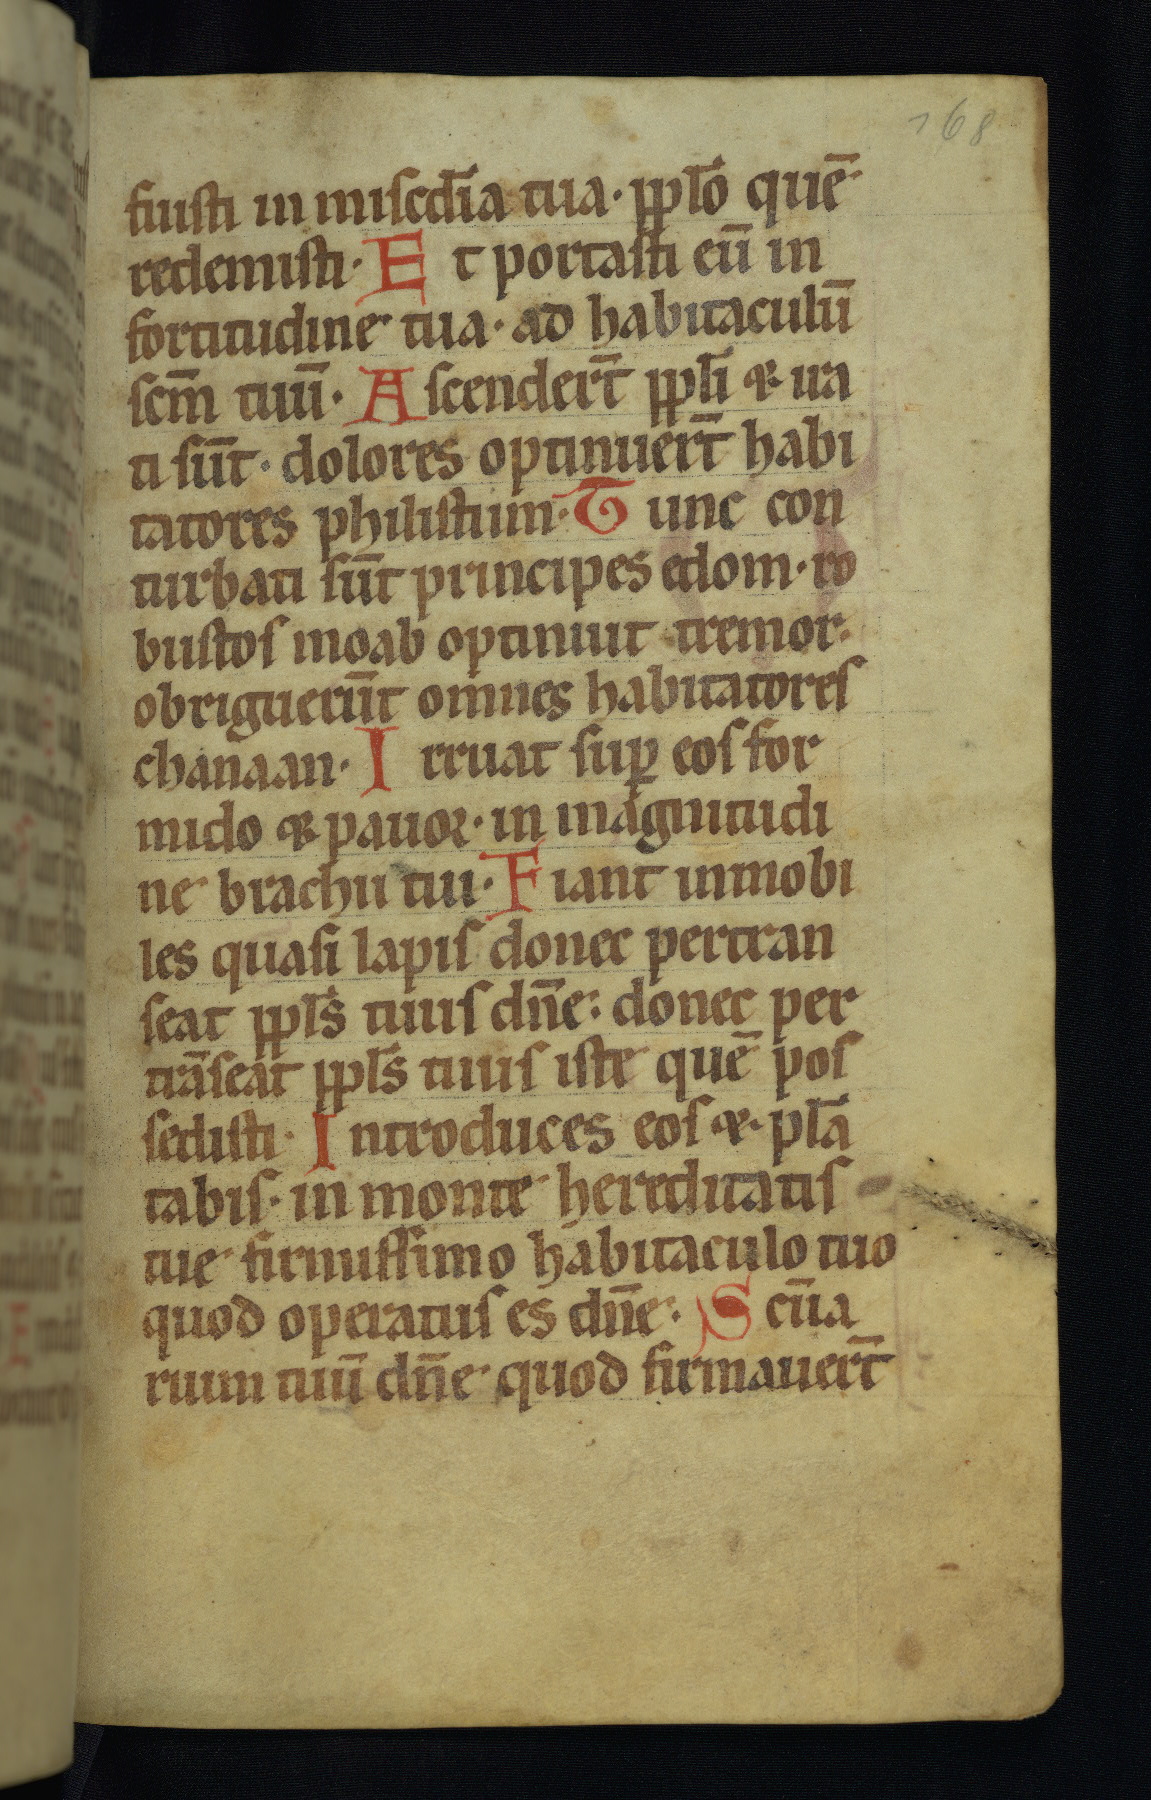 168
fuisti in miscd̄ia tua· ppl̄o quē
redemisti· Et portasti eū in
fortitudine tua· ad habitaculū
scm̄ tuū· Ascender̄t ppl̄i & ira
ti sūt· dolores optinuer̄t habi
tatores philistiim· Tunc con
turbati sūt principes edom· ro
bustos moab optinuit tremor·
obriguerūt om̄nes habitatores
chanaan· Irruat sup̱ eos for
mido & pauor· in magnitudi
ne brachii tui· Fiant inmobi
les quasi lapis donec pertran
seat ppl̄s tuus dn̄e: donec per
trāseat ppl̄s tuus iste quē pos
sedisti· Introduces eos & plā
tabis· in monte hereditatis
tue firmissimo habitaculo tuo
quod operatus es dn̄e· Scūa
rium tuū dn̄e quod firmauer̄t